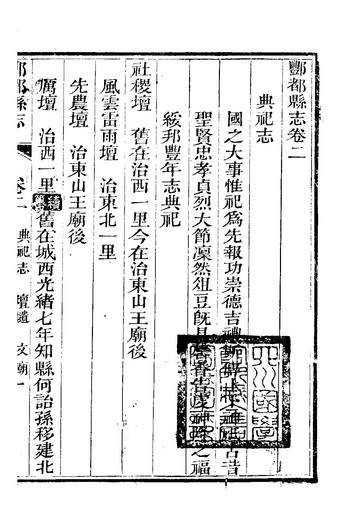 酆都縣志卷二
典祀志
國之大事惟祀為先報功崇德吉禮 古昔
聖賢忠孝貞烈大節凜然俎豆既 之福
綏邦豐年志典祀
社稷壇 舊在治西一里今在治東山王廟後
風雲雷雨壇 治東北一里
先農壇 治東山王廟後
厲壇 治西一里 舊在城西光緒七年知縣何詒孫移建北
酆都縣志 卷二 典祀志 壇 文廟 一